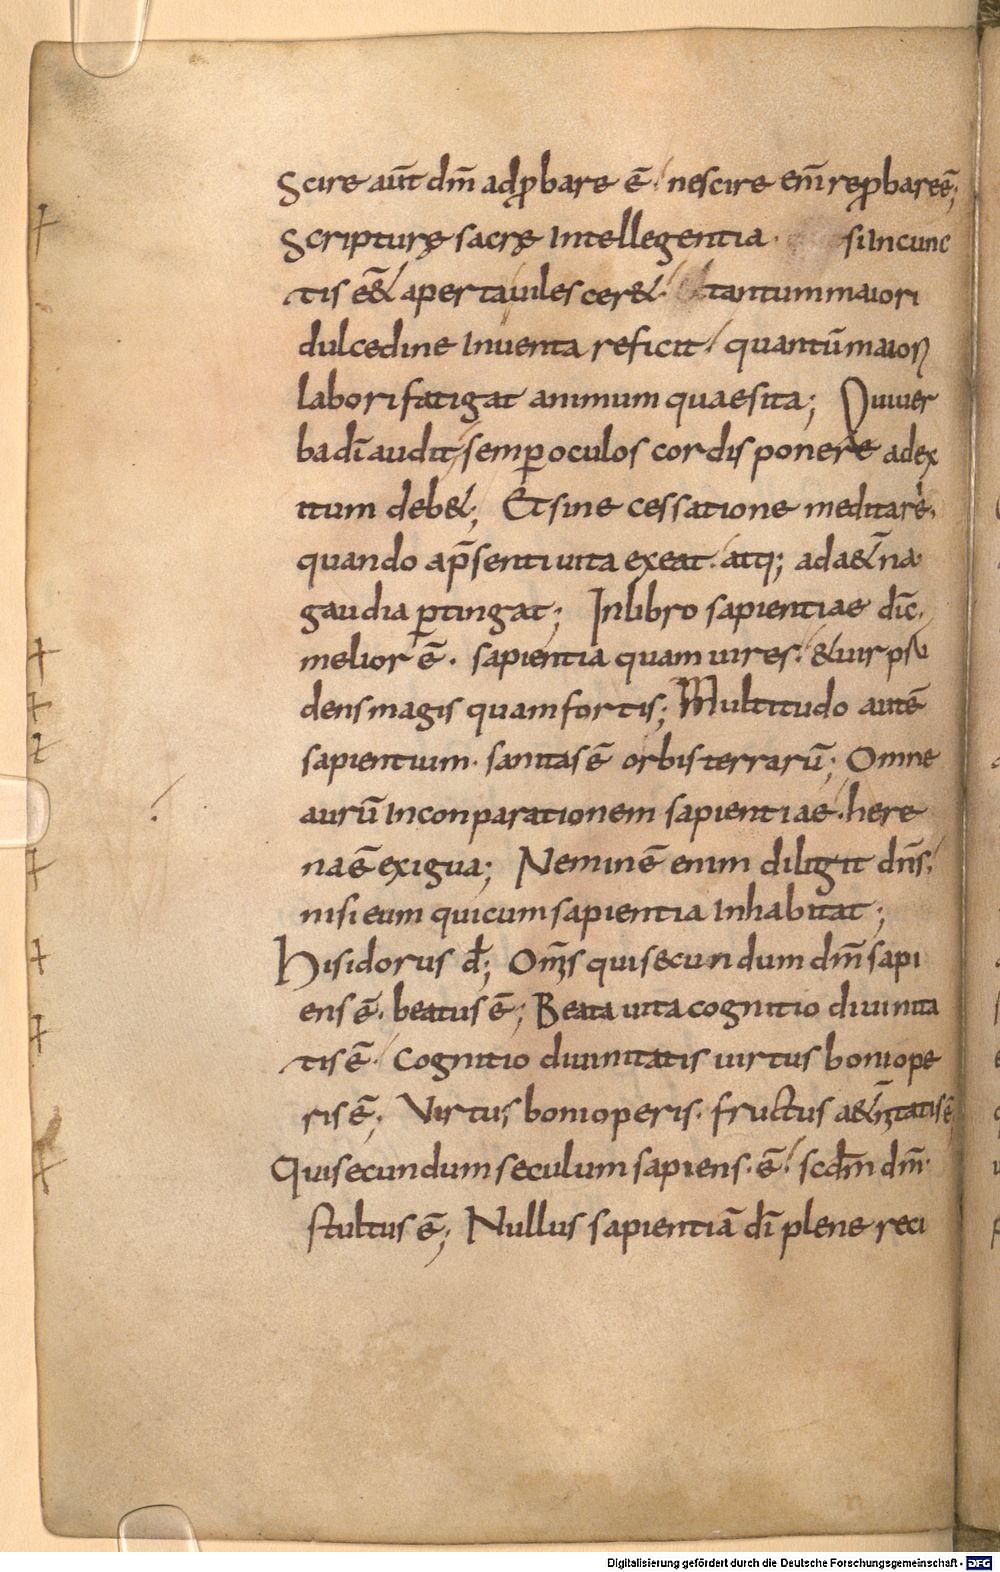 Scire aut̄ dm̄ adꝓbare ē. nescire em̄ reꝓbare ē;
Scripturę sacrę Intellegentia. si Incunc
tis ēe& aperta uilescer&. tantum maiori
dulcedine Inuenta reficit. quantū maiorj
labori fatigat animum quaesita; Qui uer
ba dī audit semꝑ oculos cordis ponere ad ex
itum deb&; Et sine cessatione meditare.
quando ap̄senti uita exeat. atq; ad a&̄na
gaudia ꝑtingat; In libro sapientiae dic̄.
melior ē. sapientia quam uires. & uir pru
dens magis quam fortis; Multitudo autē
sapientium. sanitas ē orbis terrarū; Omne
aurū Inconparationem sapientiae. here
na ē exigua; Neminē enim diligit dn̄s.
nisi eum qui cum sapientia Inhabitat;
Hisidorus d̄; Om̄s qui secundum dm̄ sapi
ens ē. beatus ē; Beata uita cognitio diuinita
tis ē. Cognitio diuinitatis uirtus boni ope
ris ē; Virtus boni operis. fructus a&̄nitatis ē;
Qui secundum seculum sapiens. ē. scdm̄ dm̄.
stultus ē; Nullus sapientiā dī plene reci
Digitalisierung gefördert durch die Deutsche Forschungsgemeinschaft - DFG